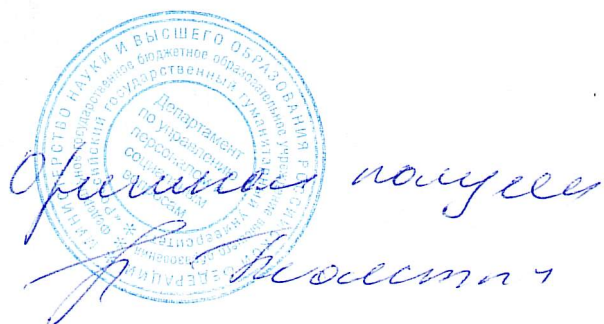 МИНИСТЕРСТВО НАУКИ И ВЫСШЕГО ОБРАЗОВАНИЯ РОССИЙСКОЙ ФЕДЕРАЦИИ
Федеральное государственное бюджетное образовательное учреждение высшего образования
Российский государственный гуманитарный университет
Департамент
по управлению
персоналом и
социальным
вопросам
Оригинал получен